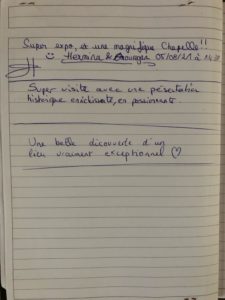 Super expo, et une magnifique Chapelle!!
Hermine & 05/08/21 à
Super visite avec une présentation
historique enrichissante, en passionnante.
Une belle découverte d'un
lieu vraiment exceptionnel ♡